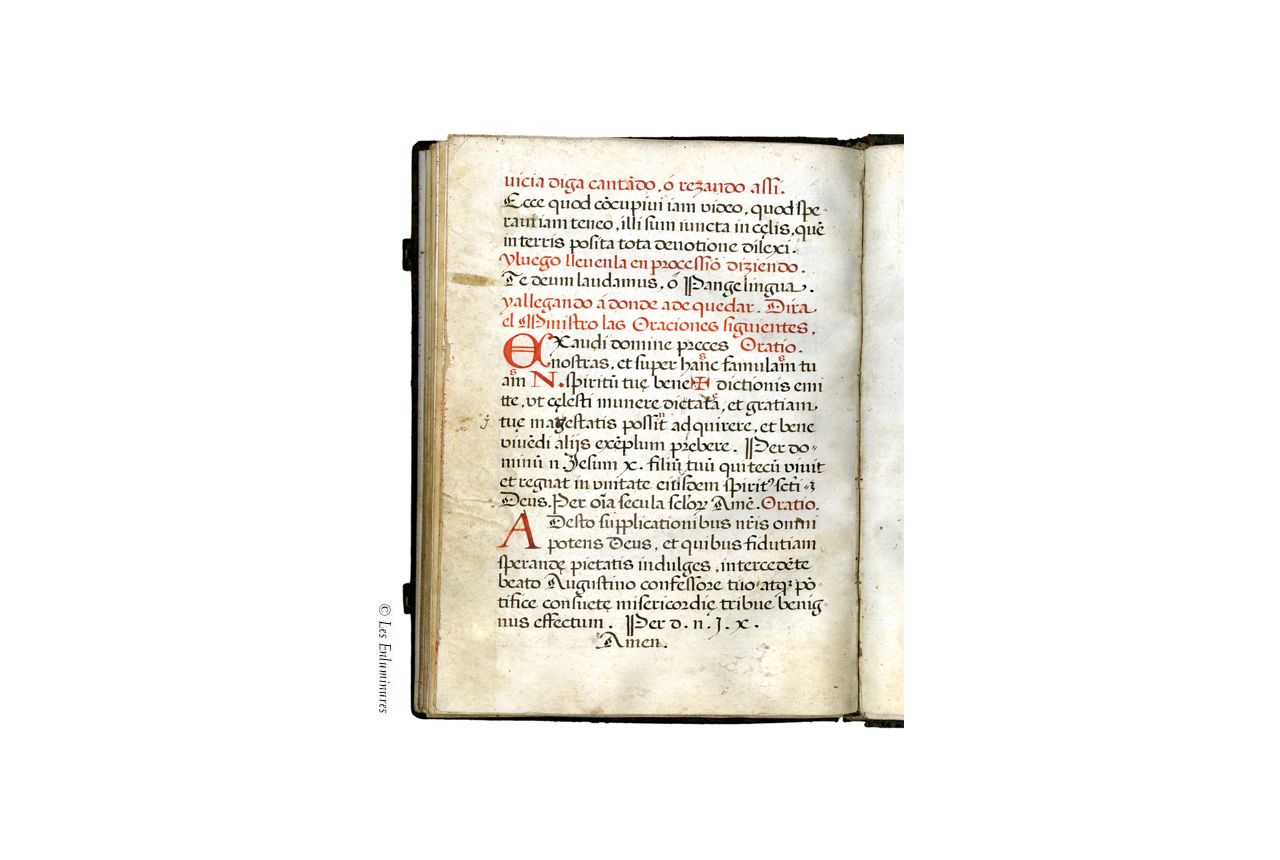 uicia diga cantãdo, ó rezando assi.
Ecce quod cõcupiui iam video, quod spe-
rau iam teneo, illi sum iuncta in cęlis, quẽ
in terris posita tota deuotione dilexi.
Y luego lleuenla en processiõ diziendo.
Te deum laudamus, ó Pange lingua.
y allegando á donde a de quedar. Dira
el Ministro las Oraciones siguientes.
EXaudi domine preces Oratio.
nostras, et super hanc famulam tu
s s
am N. spiritũ tuę bene✠dictionis emi
s
tte, vt cęlesti munere dictata, et gratiam
s
tuę magestatis possit adquirere, et bene
n
j
viuẽdi alijs exẽplum prębere. Per do-
minũ n. Jesum x. filiũ tuũ qui tecũ viuit
et regnat in vnitate eiusdem spirit⁹ scti-
Deus. Per oĩa secula sclor Amẽ. Oratio.
ADesto supplicationibus nris omni
potens Deus, et quibus fidutiam
sperandę pietatis indulges, intercedẽte
beato Augustino confessore tuo atqꝫ põ-
tifice consuetę misericordię tribue benig-
nus effectum. Per d. n. J. x.
Amen.
© Les Enluminures